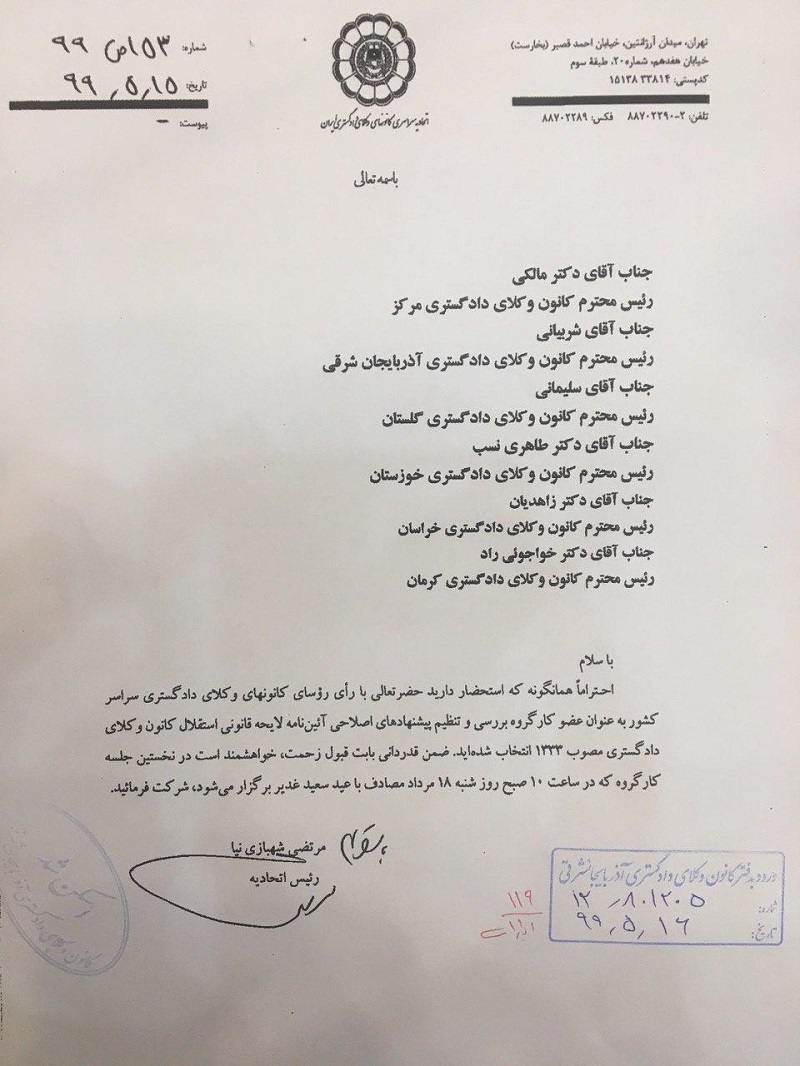 تهران، میدان آرژانتین، خیابان احمد قصیر (بخارست)
خیابان هفدهم، شماره ۲۰، طبقهٔ سوم
کدپستی: ۳۳۸۱۴ ۱۵۱۳۸
تلفن: ۲-۸۸۷۰۲۲۹۰ فکس: ۸۸۷۰۲۲۸۹
اتحادیه سراسری کانونهای وکلای دادگستری ایران
شماره: ۱۵۳/ص ۹۹
تاریخ: ۹۹٫۵٫۱۵
پیوست: –
باسمه تعالی
جناب آقای دکتر مالکی
رئیس محترم کانون وکلای دادگستری مرکز
جناب آقای شربیانی
رئیس محترم کانون وکلای دادگستری آذربایجان شرقی
جناب آقای سلیمانی
رئیس محترم کانون وکلای دادگستری گلستان
جناب آقای دکتر طاهری نسب
رئیس محترم کانون وکلای دادگستری خوزستان
جناب آقای دکتر زاهدیان
رئیس محترم کانون وکلای دادگستری خراسان
جناب آقای دکتر خواجوئی راد
رئیس محترم کانون وکلای دادگستری کرمان
با سلام
احتراماً همانگونه که استحضار دارید حضرتعالی با رأی رؤسای کانونهای وکلای دادگستری سراسر
کشور به عنوان عضو کارگروه بررسی و تنظیم پیشنهادهای اصلاحی آئین‌نامه لایحه قانونی استقلال کانون وکلای
دادگستری مصوب ۱۳۳۳ انتخاب شده‌اید. ضمن قدردانی بابت قبول زحمت، خواهشمند است در نخستین جلسه
کارگروه که در ساعت ۱۰ صبح روز شنبه ۱۸ مرداد مصادف با عید سعید غدیر برگزار می‌شود، شرکت فرمائید.
مرتضی شهبازی نیا
رئیس اتحادیه
ورود به دفتر کانون وکلای دادگستری آذربایجانشرقی
شماره: ۱۲٫۸۰۱۲۰۵
تاریخ: ۹۹٫۵٫۱۶
۱۱۹